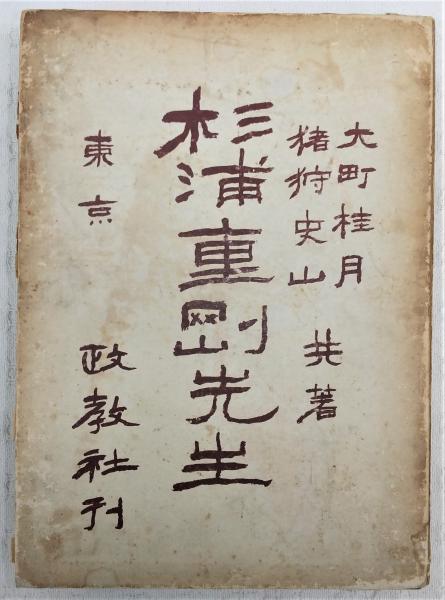 大町桂月
猪狩史山
共著
杉浦重剛先生
東京
政教社刊